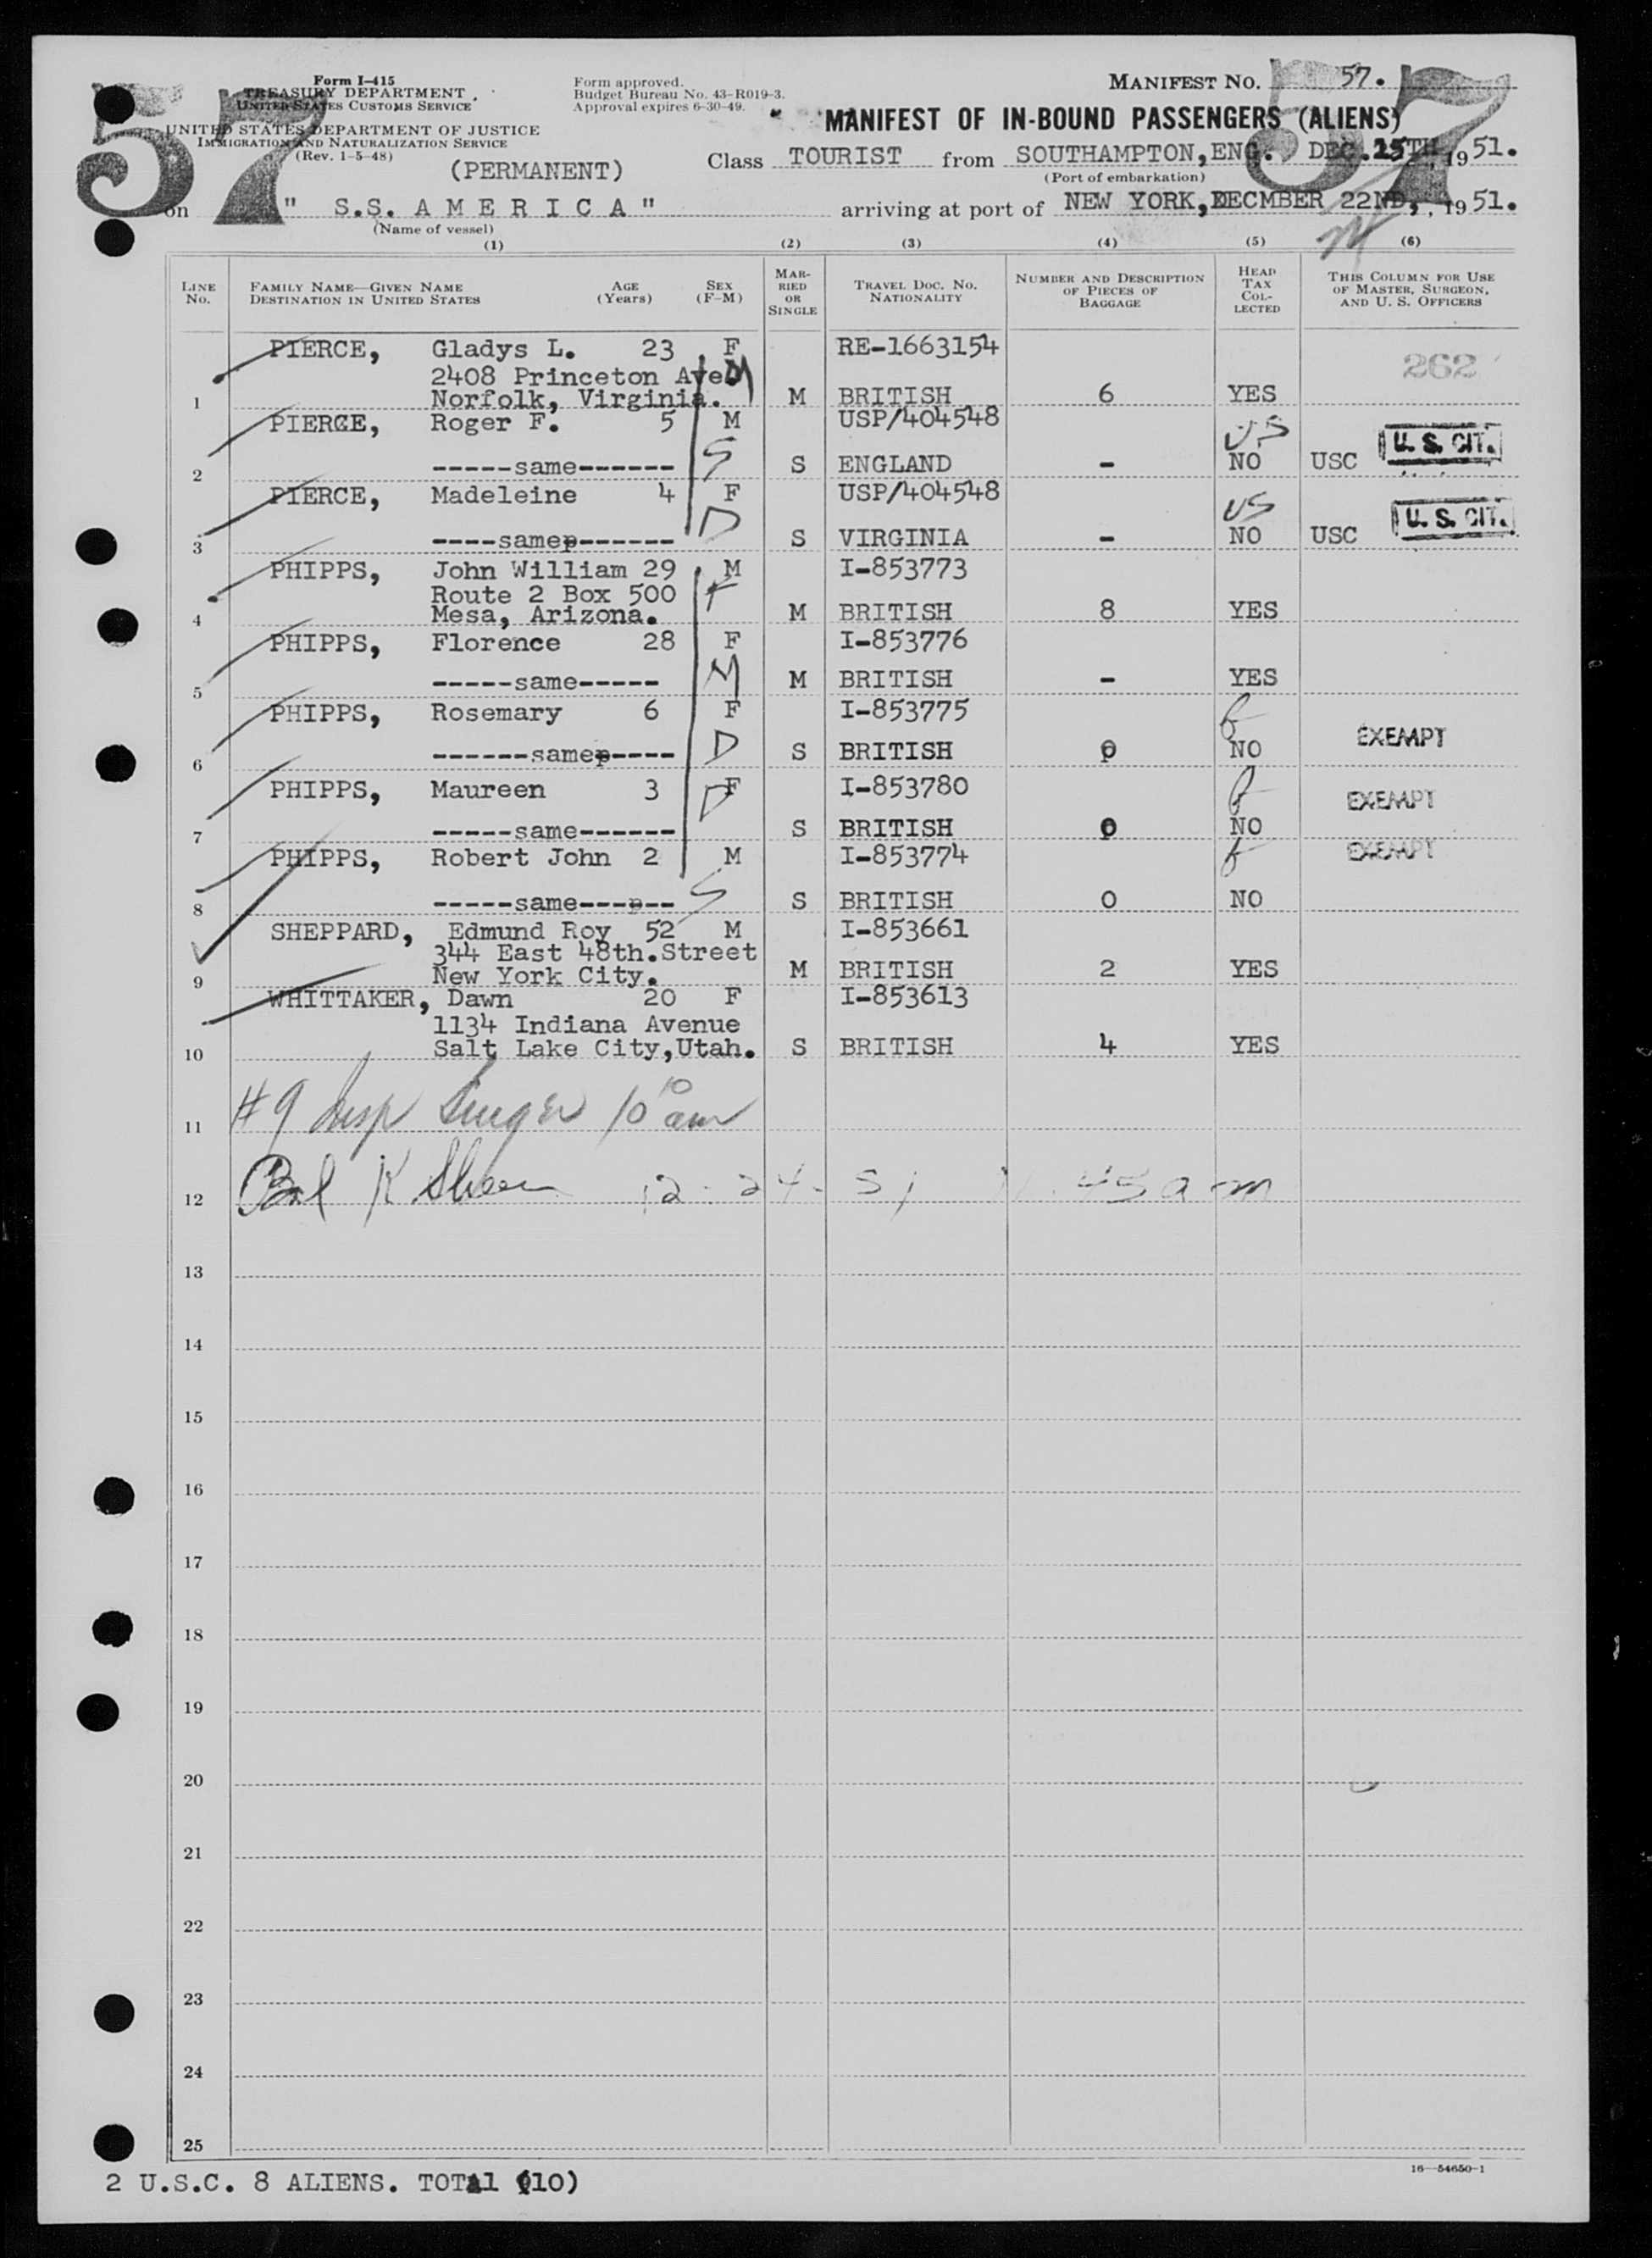 57 57
Form I-415
TREASURY DEPARTMENT
UNITED STATES CUSTOMS SERVICE
UNITED STATES DEPARTMENT OF JUSTICE
IMMIGRATION AND NATURALIZATION SERVICE
(Rev. 1-5-48)
(PERMANENT)
Form approved.
Budget Bureau No. 43-R019-3.
Approval expires 6-30-49.
MANIFEST NO. 57.
MANIFEST OF IN-BOUND PASSENGERS (ALIENS)
Class TOURIST from SOUTHAMPTON, ENG. DEC. 15TH, 1951.
(Port of embarkation)
on " S.S. A M E R I C A " arriving at port of NEW YORK, DECMBER 22ND, , 1951.
(Name of vessel)
(1) (2) (3) (4) (5) (6)
LINE NO. FAMILY NAME—GIVEN NAME DESTINATION IN UNITED STATES AGE (Years) SEX (F-M) MARRIED OR SINGLE TRAVEL DOC. NO. NATIONALITY NUMBER AND DESCRIPTION OF PIECES OF BAGGAGE HEAD TAX COLLECTED THIS COLUMN FOR USE OF MASTER, SURGEON, AND U. S. OFFICERS
PIERCE, Gladys L. 23 F RE-1663154 262
2408 Princeton Ave M
1 Norfolk, Virginia. M BRITISH 6 YES
PIERCE, Roger F. 5 M USP/404548 US
2 -----same------ S S ENGLAND - NO USC U. S. CIT.
PIERCE, Madeleine 4 F USP/404548 US
3 ----samep------ D S VIRGINIA - NO USC U. S. CIT.
PHIPPS, John William 29 M I-853773
Route 2 Box 500 F
4 Mesa, Arizona. M BRITISH 8 YES
PHIPPS, Florence 28 F I-853776
5 -----same----- M M BRITISH - YES
PHIPPS, Rosemary 6 F I-853775
6 ------samep---- D S BRITISH 0 NO EXEMPT
PHIPPS, Maureen 3 F I-853780 EXEMPT
7 -----same------ D S BRITISH 0 NO
PHIPPS, Robert John 2 M I-853774 EXEMPT
8 -----same---p-- S S BRITISH 0 NO
SHEPPARD, Edmund Roy 52 M I-853661
344 East 48th.Street
9 New York City. M BRITISH 2 YES
WHITTAKER, Dawn 20 F I-853613
1134 Indiana Avenue
10 Salt Lake City,Utah. S BRITISH 4 YES
11 #9 Insp 10 10 am
12 K 12-24-51 45 am
13
14
15
16
17
18
19
20
21
22
23
24
25
16—54650-1
2 U.S.C. 8 ALIENS. TOTAl (10)